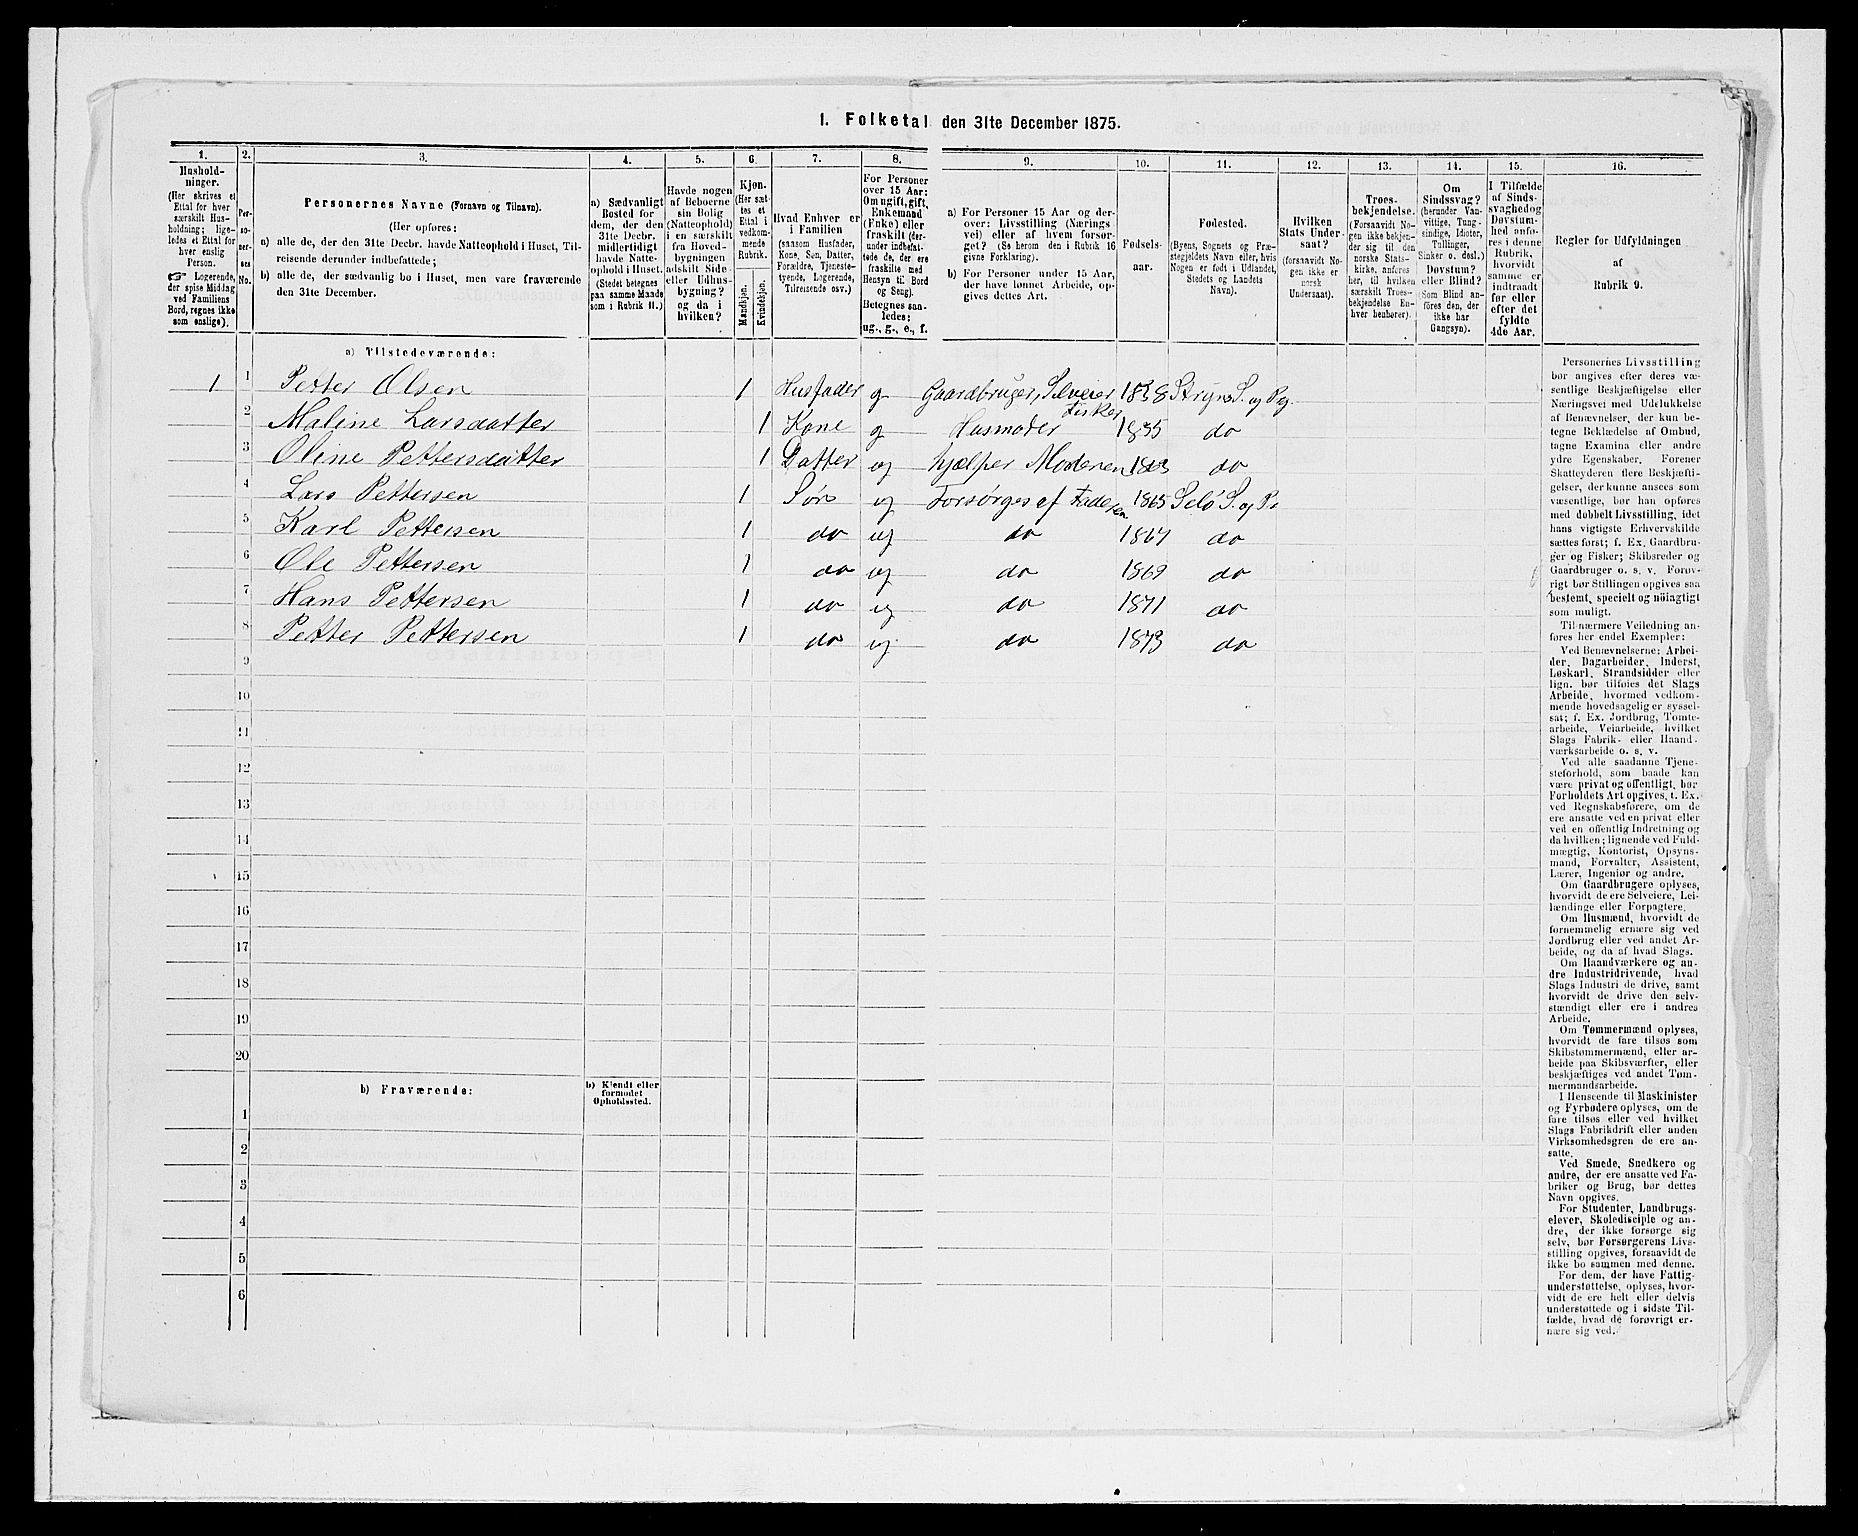 1. Folketal den 31te December 1875.
1. 2. 3. 4. 5. 6. 7. 8. 9. 10. 11. 12. 13. 14. 15. 16.
Hushold-
ninger.
(Her skrives et
Ettal for hver
særskilt Hus-
holdning; lige-
ledes et Ettal for
hver enslig
Person.
☞ Logerende,
der spise Middag
ved Familiens
Bord, regnes ikke
som enslige).
Per-
so-
ner-
nes
No.
Personernes Navne (Fornavn og Tilnavn).
(Her opføres:
a) alle de, der den 31te Decbr. havde Natteophold i Huset, Til-
reisende derunder indbefattede;
b) alle de, der sædvanlig bo i Huset, men vare fraværende
den 31te December.
a) Sædvanligt
Bosted for
dem, der den
31te Decbr.
midlertidigt
havde Natte-
ophold i Huset.
(Stedet betegnes
paa samme Maade
som i Rubrik 11.)
Havde nogen
af Beboerne
sin Bolig
(Natteophold)
i en særskilt
fra Hoved-
bygningen
adskilt Side-
eller Udhus-
bygning?
og da i
hvilken?
Kjøn.
(Her sæt-
tes et
Ettal i
vedkom-
mende
Rubrik.
Mandkjøn.
Kvindekjøn.
Hvad Enhver er
i Familien
(saasom Husfader,
Kone, Søn, Datter,
Forældre, Tjeneste-
tyende, Logerende,
Tilreisende osv.)
For Personer
over 15 Aar:
Om ugift, gift,
Enkemand
(Enke) eller
fraskilt (der-
under indbefat-
tede de, der ere
fraskilte med
Hensyn til Bord
og Seng).
Betegnes saa-
ledes:
ug., g., e., f.
a) For Personer 15 Aar og der-
over: Livsstilling (Nærings-
vei) eller af hvem forsør-
get? (Se herom den i Rubrik 16
givne Forklaring).
b) For Personer under 15 Aar,
der have lønnet Arbeide, op-
gives dettes Art.
Fødsels-
aar.
Fødested.
(Byens, Sognets og Præ-
stegjeldets Navn eller, hvis
Nogen er født i Udlandet,
Stedets og Landets
Navn).
Hvilken
Stats Under-
saat?
(forsaavidt No-
gen ikke er
norsk
Undersaat).
Troes-
bekjendelse.
(Forsaavidt No-
gen ikke bekjen-
der sig til den
norske Stats-
kirke, anføres
her, til hvilken
særskilt Troes-
bekjendelse En-
hver henhører).
Om
Sindssvag?
(herunder Van-
vittige, Tung-
sindige, Idioter,
Tullinger,
Sinker o. desl.)
Døvstum?
eller Blind?
(Som Blind an-
føres den, der
ikke har
Gangsyn).
I Tilfælde
af Sinds-
svaghed og
Døvstum-
hed anfø-
res i denne
Rubrik,
hvorvidt
samme er
indtraadt
før eller
efter det
fyldte
4de Aar.
Regler for Udfyldningen
af
Rubrik 9.
a) Tilstedeværende:
1 1 Petter Olsen 1 Husfader g Gaardbruger, Selveier Fisker 1838 Stryns S. og Pg.
2 Maline Larsdatter 1 Kone g Husmoder 1835 do
3 Oline Pettersdatter 1 Datter ug hjælper Moderen 1863 do
4 Lars Pettersen 1 Søn ug Forsørges af Faderen 1865 Selø S. og Pr
5 Karl Pettersen 1 do ug do 1867 do
6 Ole Pettersen 1 do ug do 1869 do
7 Hans Pettersen 1 do ug do 1871 do
8 Petter Pettersen 1 do ug do 1873 do
9
10
11
12
13
14
15
16
17
18
19
20
b) Fraværende:
b) Kjendt eller
formodet
Opholdssted.
1
2
3
4
5
6
Personernes Livsstilling
bør angives efter deres væ-
sentlige Beskjæftigelse eller
Næringsvei med Udelukkelse
af Benævnelser, der kun be-
tegne Beklædelse af Ombud,
tagne Examina eller andre
ydre Egenskaber. Forener
Skatteyderen flere Beskjæfti-
gelser, der kunne ansees som
væsentlige, bør han opføres
med dobbelt Livsstilling, idet
hans vigtigste Erhvervskilde
sættes først; f. Ex. Gaardbru-
ger og Fisker; Skibsreder og
Gaardbruger o. s. v. Forøv-
rigt bør Stillingen opgives saa
bestemt, specielt og nöiagtigt
som muligt.
Til nærmere Veiledning an-
føres her endel Exempler:
Ved Benævnelserne: Arbei-
der, Dagarbeider, Inderst,
Løskarl, Strandsidder eller
lign. bør tilføies det Slags
Arbeide, hvormed vedkom-
mende hovedsagelig er syssel-
sat; f. Ex. Jordbrug, Tomte-
arbeide, Veiarbeide, hvilket
Slags Fabrik- eller Haand-
værksarbeide o. s. v.
Ved alle saadanne Tjene-
steforhold, som baade kan
være privat og offentligt, bør
Forholdets Art opgives, t. Ex.
ved Regnskabsførere, om de
ere ansatte ved en privat eller
ved en offentlig Indretning og
da hvilken; lignende ved Fuld-
mægtig, Kontorist, Opsyns-
mand, Forvalter, Assistent,
Lærer, Ingeniør og andre.
Om Gaardbrugere oplyses,
hvorvidt de ere Selveiere, Lei-
lændinge eller Forpagtere.
Om Husmænd, hvorvidt de
fornemmelig ernære sig ved
Jordbrug eller ved andet Ar-
beide, og da af hvad Slags.
Om Haandværkere og an-
dre Industridrivende, hvad
Slags Industri de drive, samt
hvorvidt de drive den selv-
stændigt eller ere i andres
Arbeide.
Om Tømmermænd oplyses,
hvorvidt de fare tilsøs som
Skibstømmermænd, eller ar-
beide paa Skibsværfter, eller
beskjæftiges ved andet Tøm-
mermandsarbeide.
I Henseende til Maskinister
og Fyrbødere oplyses, om de
fare tilsøs eller ved hvilket
Slags Fabrikdrift eller anden
Virksomhedsgren de ere an-
satte.
Ved Smede, Snedkere og
andre, der ere ansatte ved Fa-
briker og Brug, bør dettes
Navn opgives.
For Studenter, Landbrugs-
elever, Skoledisciple og an-
dre, der ikke forsørge sig
selv, bør Forsørgerens Livs-
stilling opgives, forsaavidt de
ikke bo sammen med denne.
For dem, der have Fattig-
understøttelse, oplyses, hvor-
vidt de ere helt eller delvis
understøttede og i sidste Til-
fælde, hvad de forøvrigt er-
nære sig ved.